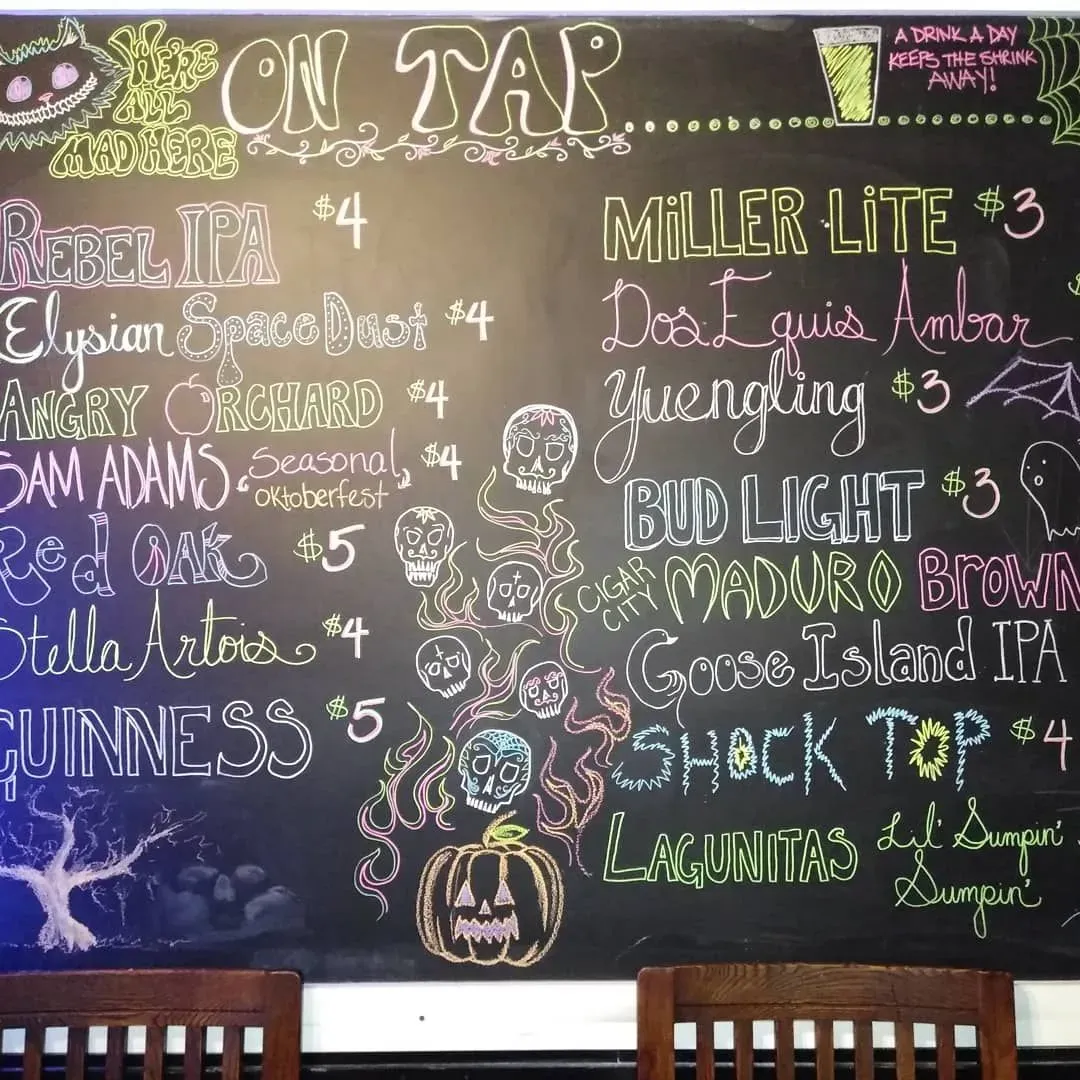 WE'RE
ALL
MAD HERE
ON TAP
A DRINK A DAY
KEEPS THE SHRINK
AWAY!
REBEL IPA $4
Elysian Space Dust $4
ANGRY ORCHARD $4
SAM ADAMS Seasonal $4
oktoberfest
Red OAK $5
Stella Artois $4
GUINNESS $5
MiLLER LiTE $3
Dos Equis Ambar $
Yuengling $3
BUD LIGHT $3
CIGAR CITY MADURO BROWN
Goose Island IPA
SHOCK TOP $4
LAGUNITAS Lil' Sumpin'
Sumpin'